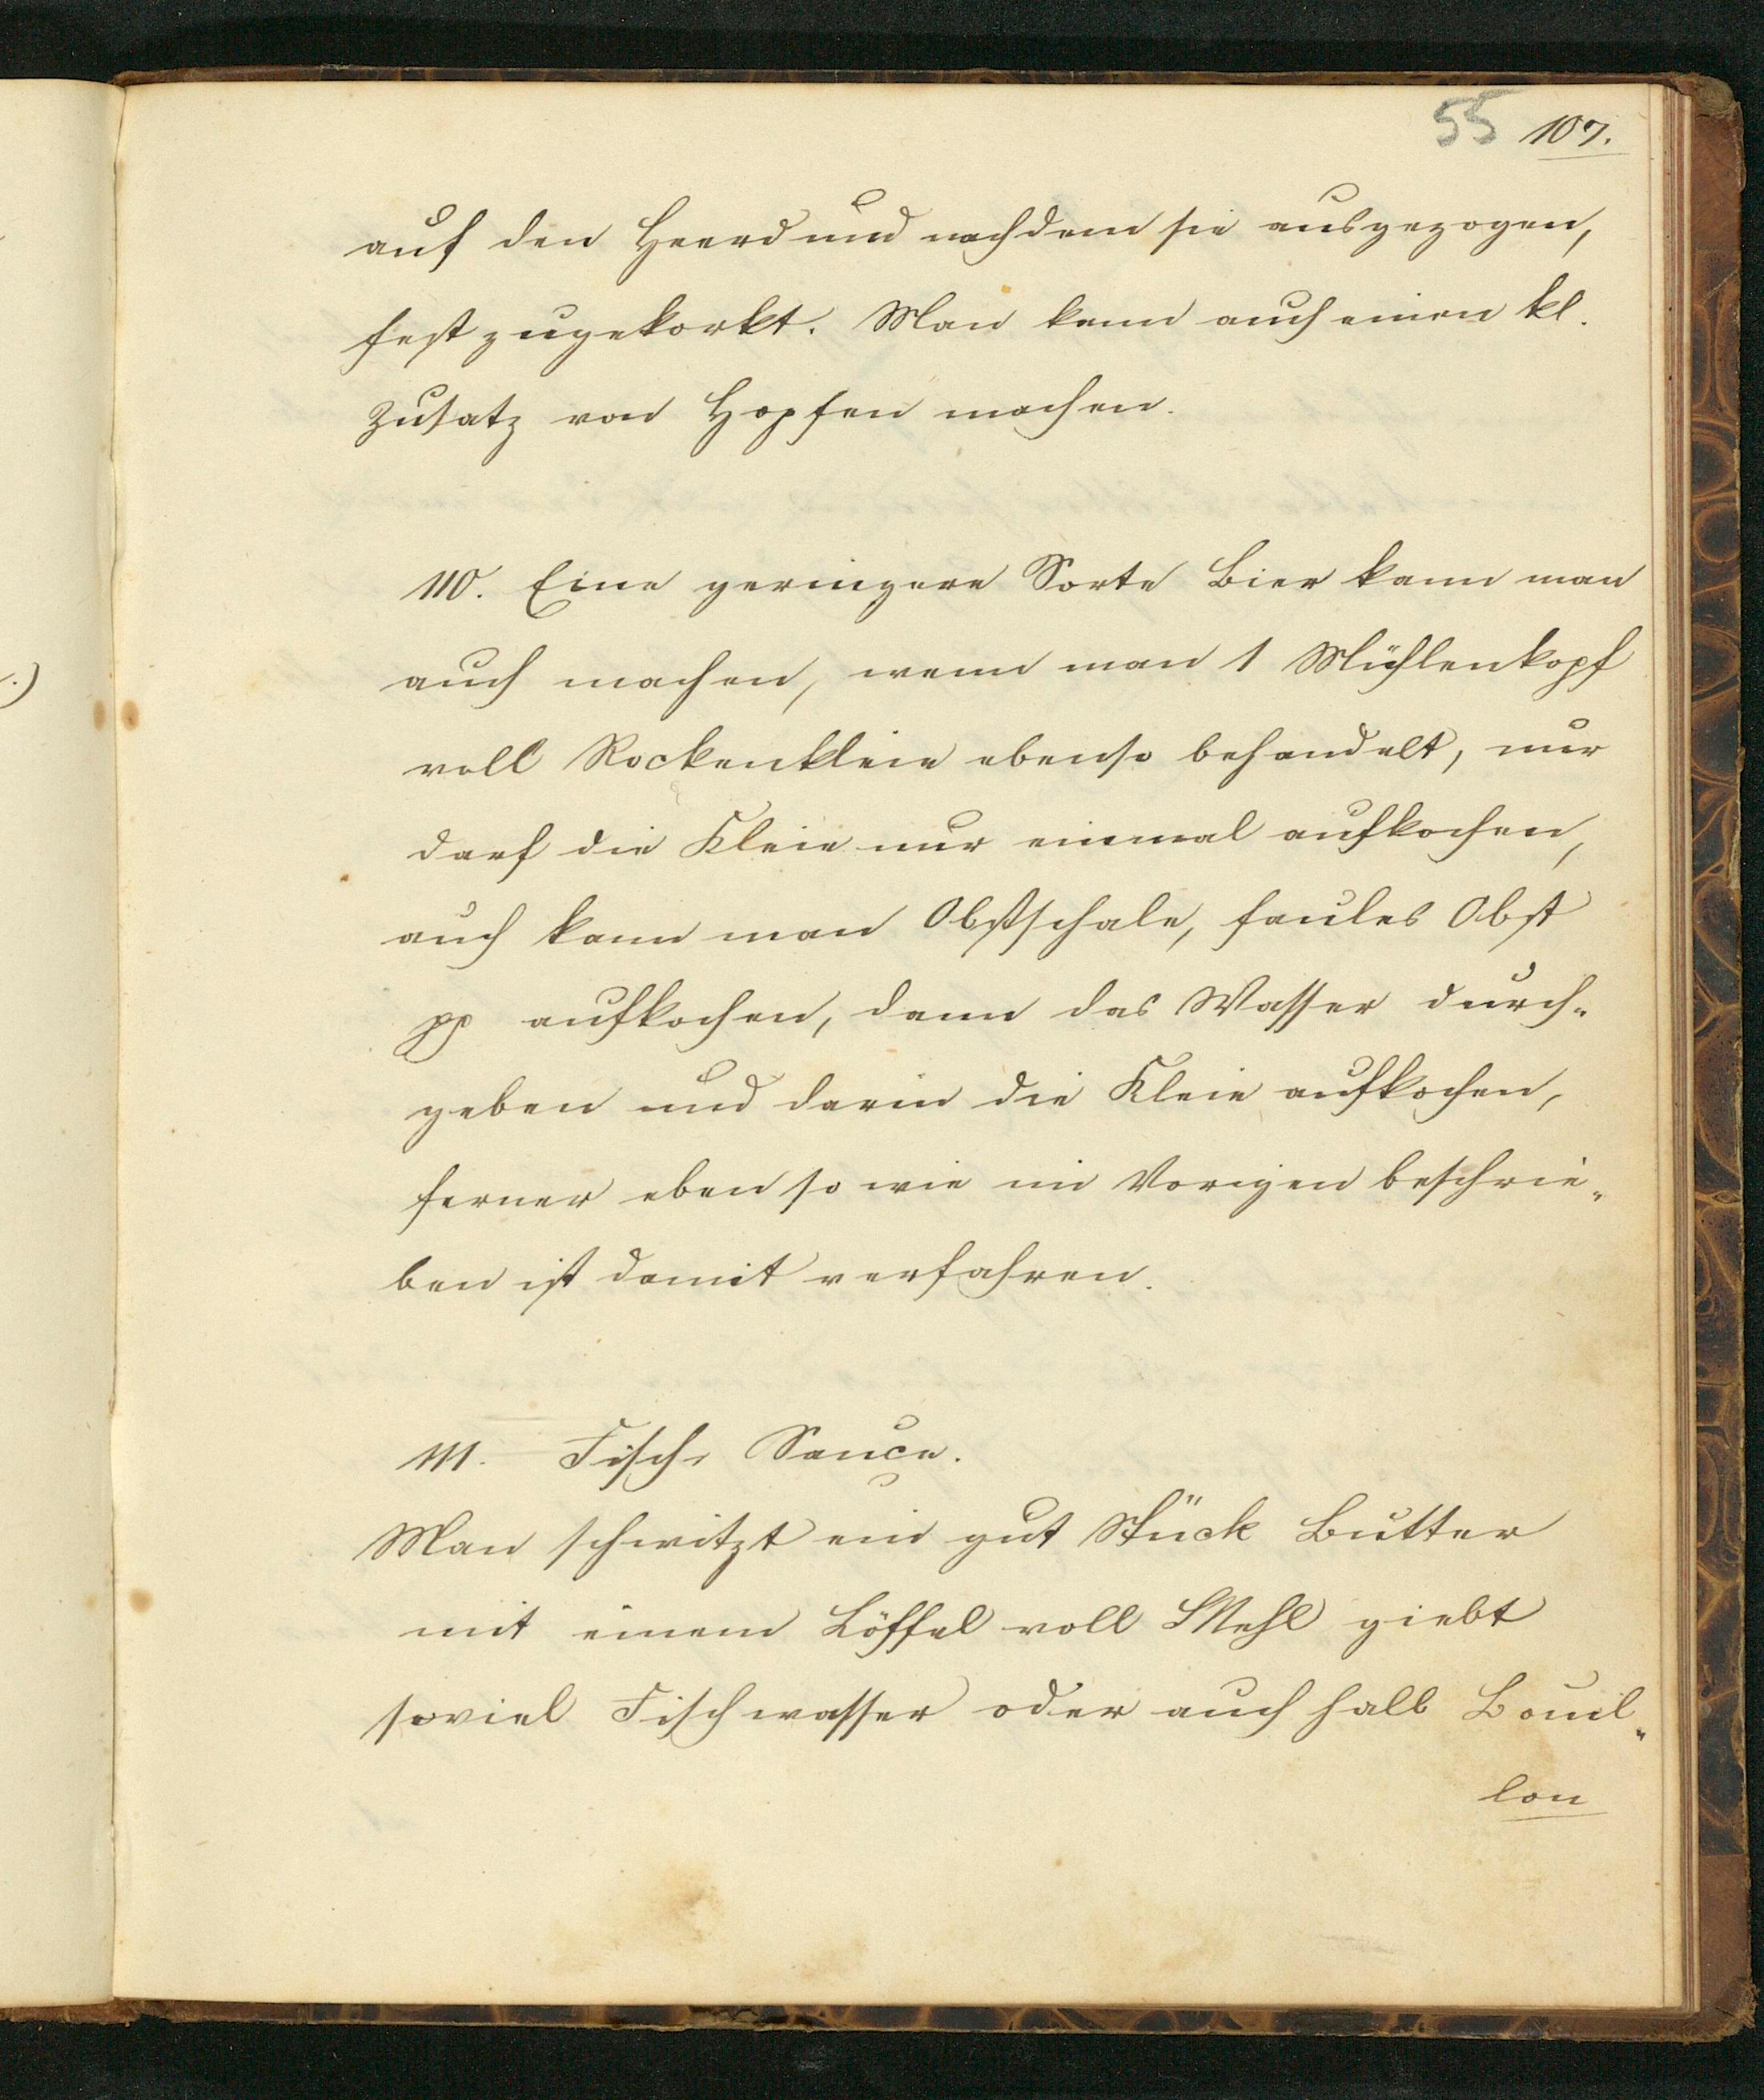 55 107.
auf den Heerd und nachdem sie ausgezogen,
fest zugekorkt. Man kann auch einen kl.
Zusatz von Hopfen machen.
110. Eine geringere Sorte Bier kann man
auch machen, wenn man 1 Mühlenkopf
voll Rockenkleie ebenso behandelt, nur
darf die Kleie nur einmal aufkochen,
auch kann man Obstschale, faules Obst
pp aufkochen, dann das Wasser durch-
geben und darin die Kleie aufkochen,
ferner eben so wie im Vorigen beschrie-
ben ist damit verfahren.
111. Fisch-Sauce.
Man schwitzt ein gut Stück Butter
mit einem Löffel voll Mehl giebt
soviel Fischwasser oder auch halb Bouil-
lon